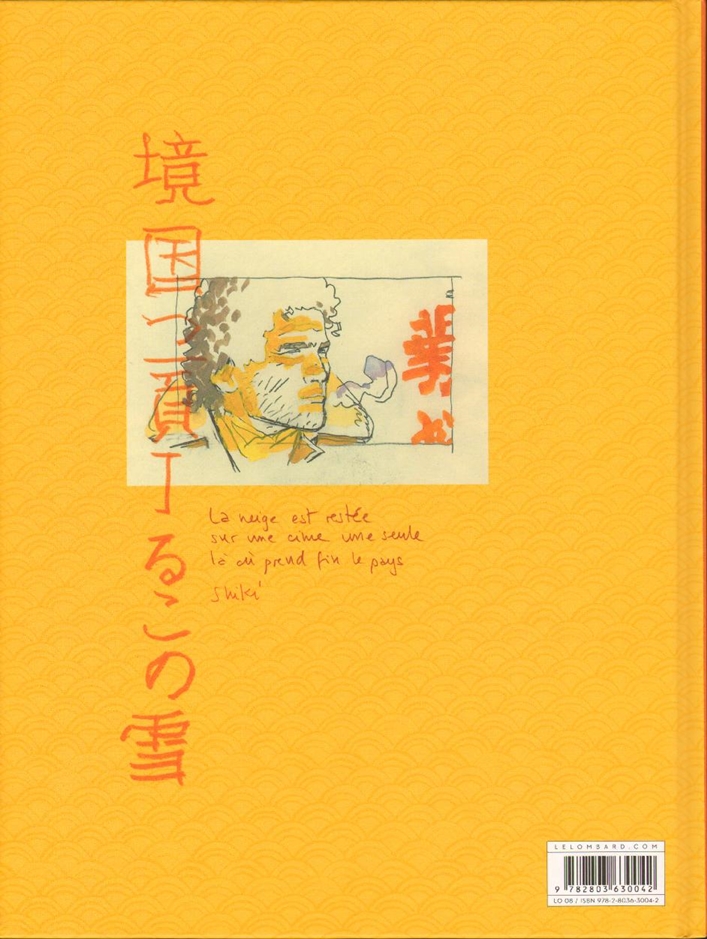 境国つ一頁丁るこの雪
La neige est restée
sur une cime une seule
là où prend fin le pays
Shiki
LELOMBARD.COM
9 782803 630042
LO 08 / ISBN 978-2-8036-3004-2